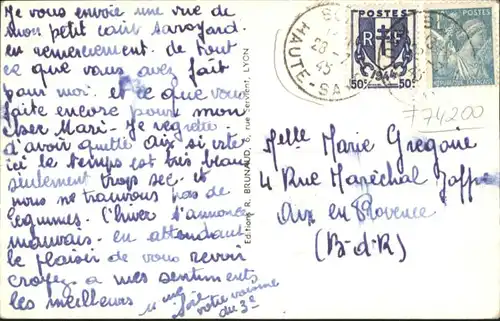 Je vous envoie une vue de
mon petit coin savoyard
en remerciement de tout
ce que vous avez fait
pour moi. et ce que vous
faite encore pour mon
cher Mari. Je regrette
d'avoir quitté Aix si vite
ici le temps est très beau
seulement trop sec et
nous ne trouvons pas de
legumes. l'hiver s'annonce
mauvais. en attendant
le plaisir de vous revoir
croyez a mes sentiments
les meilleurs
votre voisine
du 3e
Editions R. BRUNAUD, 6, rue Servient, LYON
HAUTE-SA
28
45
POSTES
RF
1944
50c 50c
F74200
Melle Marie Gregoire
4 Rue Maréchal Joffre
Aix en Provence
(B-d-R)